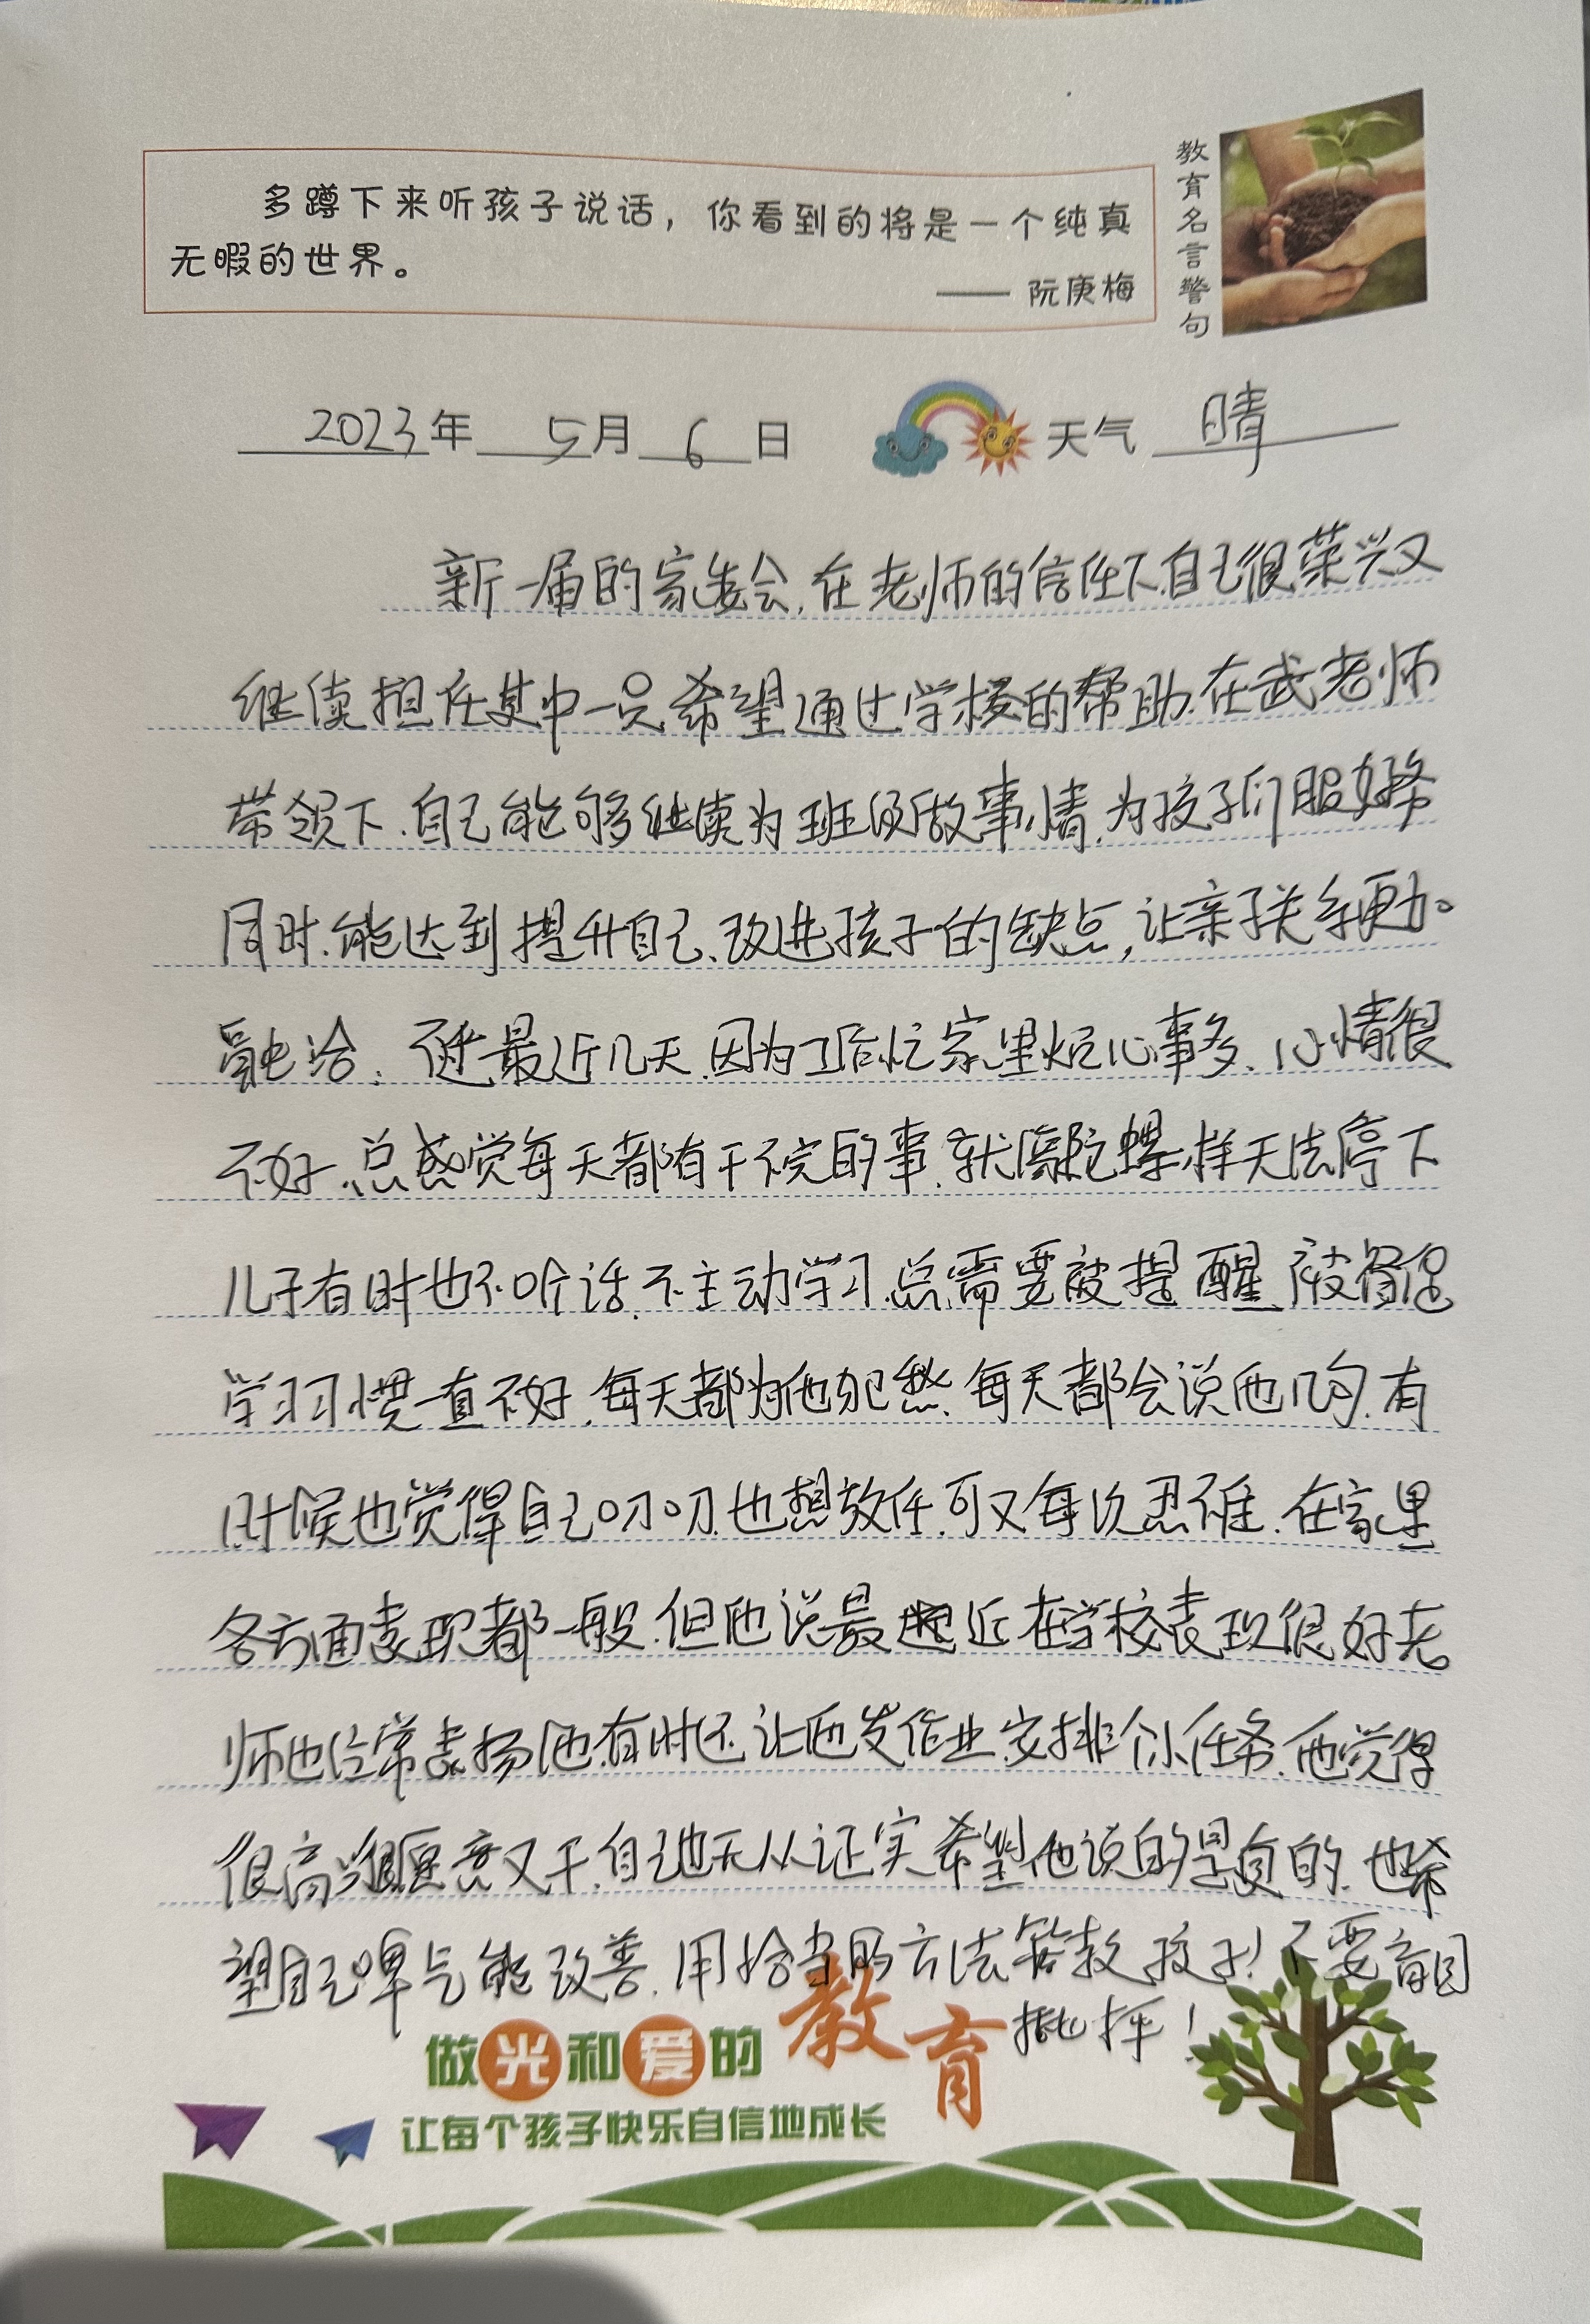 多蹲下来听孩子说话，你看到的将是一个纯真
无暇的世界。
—— 阮庚梅
教育名言警句
2023年 5月 6日 天气 晴
新一届的家委会,在老师的信任下.自己很荣兴又
继续担任其中一员希望通过学校的帮助.在武老师
带领下.自己能够继续为班级做事情.为孩子们服好务
同时.能达到提升自己.改进孩子的缺点,让亲子关系更加
融洽. 最近几天.因为工作忙家里烦心事多.心情很
不好.总感觉每天都有干不完的事.就像陀螺一样无法停下
儿子有时也不听话.不主动学习.总需要被提醒.被督促
学习习惯一直不好.每天都为他犯愁.每天都会说他几句.有
时候也觉得自己叨叨.也想放任.可又每次思维.在家里
各方面表现都一般.但他说最近在学校表现很好老
师也经常表扬他.有时还让他发作业.安排个小任务.他觉得
很高兴很愿意又干.自己也无从证实希望他说的是真的.也希
望自己脾气能改善.用恰当的方法管教孩子!不要盲目
批评!
做光和爱的教育
让每个孩子快乐自信地成长